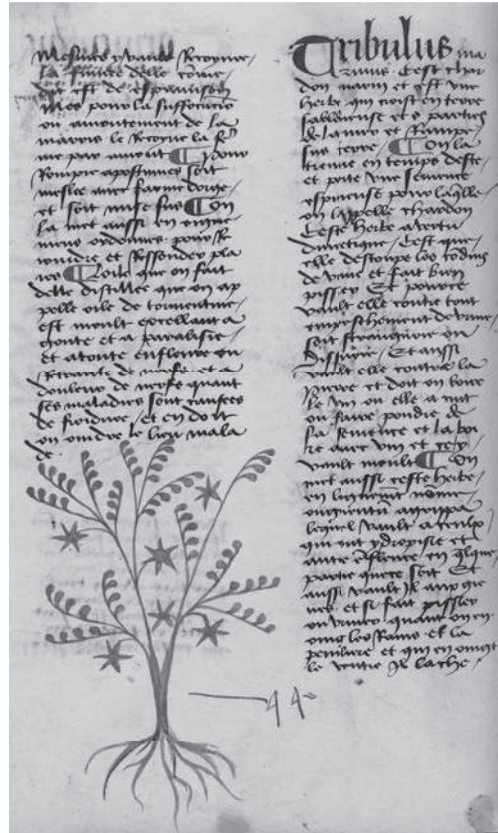 la fumee delle come
dit est de
mes pour la suffocacio
ou amontement de la
marris le Recoyve la fe
me par amont ¶ pour
Rompre apostumes soit
meslee avec farine dorge
et soit mise sus ¶ On
la met aussi en ongue
mens ordonnes pour R
ioindre et Ressouder pla
ies ¶ Loile que on fait
delle distillee que on ap
pelle oile de tormentine
est moult excellant a
goute et a paralisie
et a toute enfleure ou
Retraite de nerfs et a
douleur de nerfs quant
ses maladies sont causees
de froidure / et en doit
on oindre le lieu mala
de
Tribulus ma
rinus Cest char
don marin et est une
herbe qui croist en terre
sablonneuse es parties
de la mer et Rampe
sus terre ¶ On la
treuve en temps deste
et porte une semence
espineuse pour laqlle
on lappelle chardon
Ceste herbe a vertu
diuretique Cest que
elle destoupe les coduis
de urine et fait bien
pisser Et pource
vault elle contre tout
empeschement de urine
soit stranguirie ou
dissurie Et aussi
vault elle contre la
pierre et doit on boire
le vin ou elle a cuit
ou faire pouldre de
sa semence et la boi
re avec vin et cecy
vault moult ¶ On
met aussi ceste herbe
en lunguement nomme
unguentu agrippa
lequel vault a ceulx
qui ont ydropisie et
autre efleure en qlque
partie quere soit Et
aussi vault il aux
et si fait pisser
quant on en
oingt les Rains et la
penilliere et qui en oingt
le ventre il lache
44